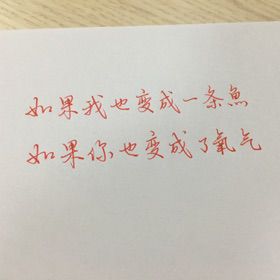 如果我也变成一条魚
如果你也变成了氧气